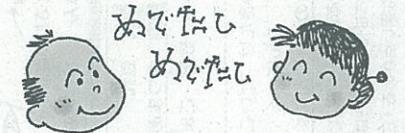 めでたし
めでたし